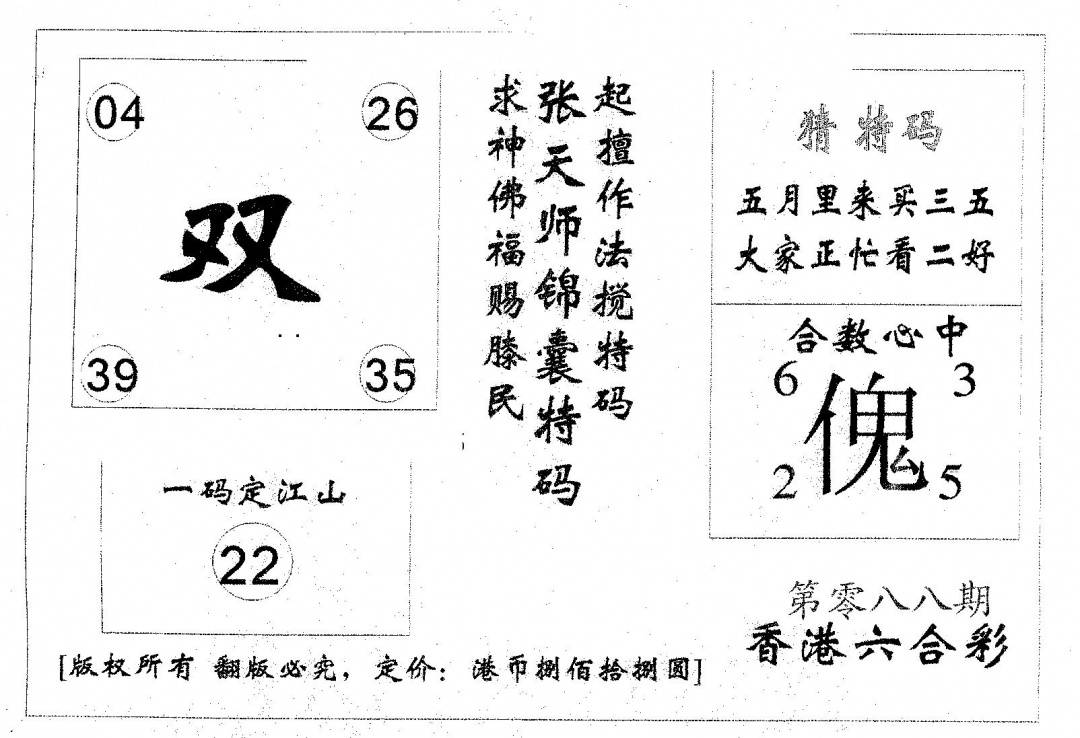 04 26
双
39 35
一码定江山
22
起擅作法搅特码
张天师锦囊特码
求神佛福赐滕民
猜特码
五月里来买三五
大家正忙看二好
合数必中
6 3
傀
2 5
第零八八期
香港六合彩
[版权所有 翻版必究，定价：港币捌佰拾捌圆]